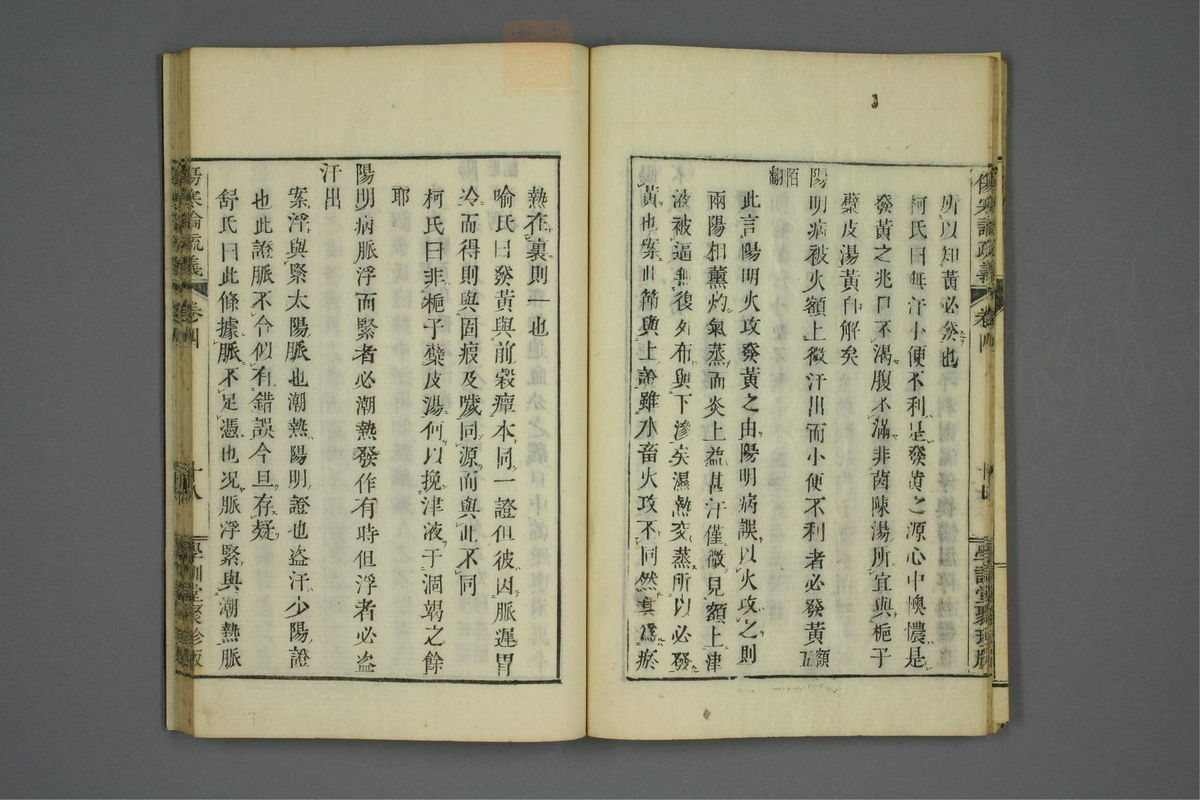 傷寒論疏義
卷四
十七
學訓堂聚珍版
所以知黃必發也
柯氏曰無汗小便不利是發黃之源心中懊憹是
發黃之兆口不渴腹不滿非茵陳湯所宜與梔子
蘗皮湯黃自解矣
陽明病被火額上微汗出而小便不利者必發黃額五
陌翻
此言陽明火攻發黃之由陽明病誤以火攻之則
兩陽相薰灼氣蒸而炎上益甚汗僅微見額上津
液被逼無復外布與下滲矣濕熱交蒸所以必發
黃也案此節與上證雖水畜火攻不同然其爲瘀
熱在裏則一也
喻氏曰發黃與前穀癉本同一證但彼因脈遲胃
冷而得則與固瘕及噦同源而與此不同
柯氏曰非梔子蘗皮湯何以挽津液于涸竭之餘
耶
陽明病脈浮而緊者必潮熱發作有時但浮者必盜
汗出
案浮與緊太陽脈也潮熱陽明證也盜汗少陽證
也此證脈不合似有錯誤今且存疑
舒氏曰此條據脈不足憑也况脈浮緊與潮熱脈
傷寒論疏義
卷四
十八
學訓堂聚珍版